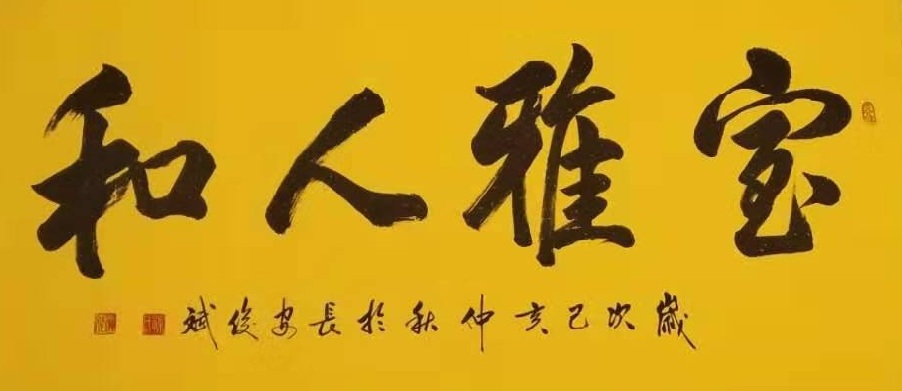 室雅人和
歲次己亥仲秋於長安俊斌